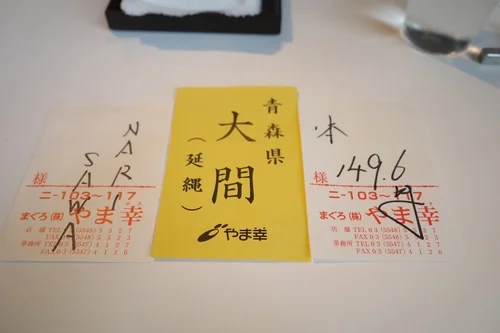 NARI
SAWA
様
ニ-103~117
まぐろ(株) やま幸
店舗 TEL 03 (5548) 5327
FAX 03 (5548)
事務所 TEL 03 (5547) 4127
FAX 03 (5547) 4126
青森県
大間
(延縄)
やま幸
本
149.6
様
ニ-103~117
まぐろ(株) やま幸
店舗 TEL 03 (5548) 5327
FAX 03 (5548)
事務所 TEL 03 (5547) 4127
FAX 03 (5547) 4126